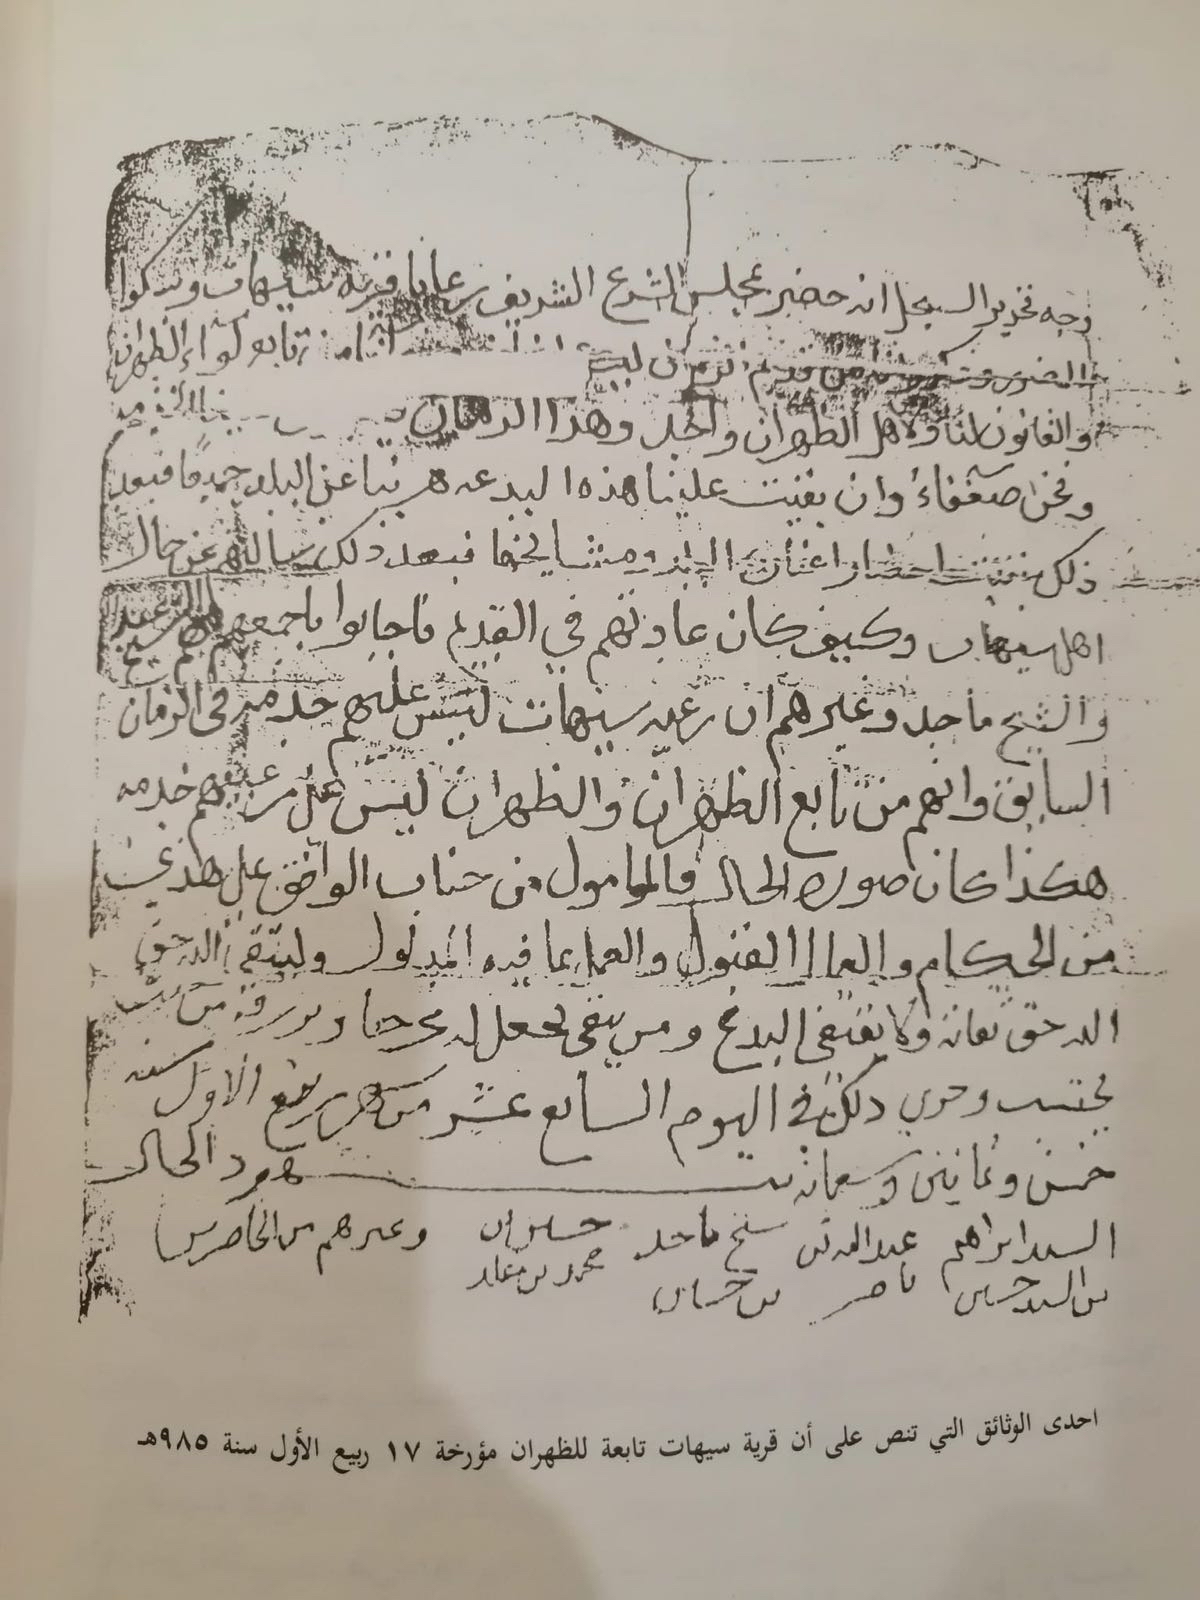 وجه تحرير السجل انه حضر مجلس الشرع الشريف رعايا قرية سيهات وشكوا
من قديم تابع لواء الظهران
والقانون لنا ولاهل الظهران واحد وهذا الزمان
ونحن ضعفاء وان بقيت علينا هذه البدعه هربنا عن البلد جميعا فبعد
ذلك احضار اعيان البلد ومشايخها فبعد ذلك سالناهم عن حال
اهل سيهات وكيف كان عادتهم في القديم فاجابوا باجمعهم
والشيخ ماجد وغيرهم ان رعية سيهات ليس عليهم خدمه في الزمان
السابق وانهم من تابع الظهران والظهران ليس على رعيتهم خدمه
هكذا كان صورة الحال فالمامول من جناب الواقف على هذه
من الحكام والعمال القبول والعمل بما فيه المبذول وليتقي الله حق
الله حق تقاته ولا يقتفي البدع ومن يتقي يجعل له مخرجا ويرزقه من حيث
يحتسب وجرى ذلك في اليوم السابع عشر من شهر ربيع الاول سنة
خمس وثمانين وتسعمائة شهود الحال
السيد ابراهيم عبد الله بن شيخ ماجد وغيرهم من الحاضرين
بن السيد حسين ناصر محمد بن
احدى الوثائق التي تنص على أن قرية سيهات تابعة للظهران مؤرخة ١٧ ربيع الأول سنة ٩٨٥هـ